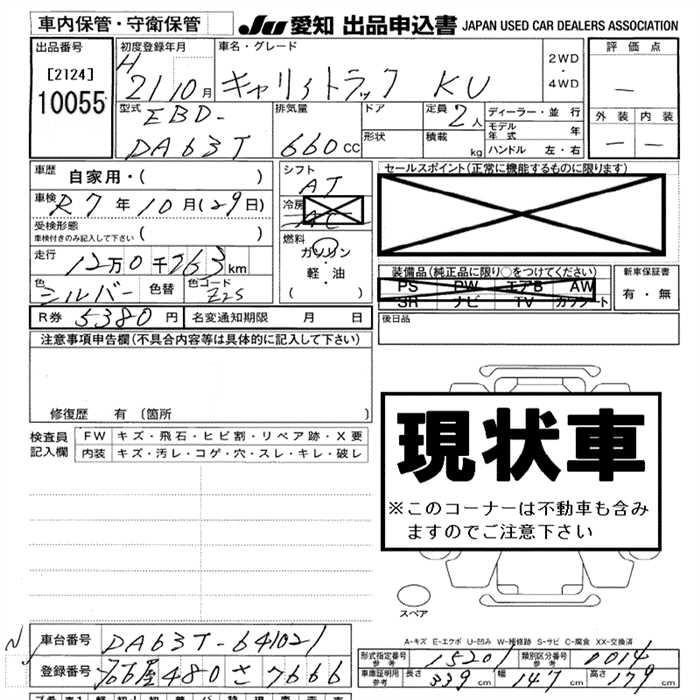 車内保管・守衛保管
JU 愛知 出品申込書 JAPAN USED CAR DEALERS ASSOCIATION
出品番号
[2124]
10055
初度登録年月
H 21 10月
車名・グレード
キャリイトラック KU
2WD
・
4WD
評価点
—
外装 内装
— —
型式
EBD-
DA63T
排気量
660 CC
ドア
形状
定員 2人
積載 kg
ディーラー・並行
モデル年式 年
ハンドル 左・右
車歴 自家用・( )
車検 R7年10月(29日)
受検形態
車検付きのみ記入して下さい ( )
走行 12万0千763km
色 シルバー 色替 色コード Z2S
シフト
AT
冷房
AC
燃料
ガソリン
・
軽・油
( )
セールスポイント(正常に機能するものに限ります)
装備品(純正品に限り○をつけてください)
PS PW エアB AW
SR ナビ TV カワシート
新車保証書
有・無
R券 5380円 名変通知期限 月 日
後日品
注意事項申告欄(不具合内容等は具体的に記入して下さい)
修復歴 有(箇所 )
検査員
記入欄
FW キズ・飛石・ヒビ割・リペア跡・X要
内装 キズ・汚レ・コゲ・穴・スレ・キレ・破レ
現状車
※このコーナーは不動車も含み
ますのでご注意下さい
スペア
A-キズ E-エクボ U-凹み W-補修跡 S-サビ C-腐食 XX-交換済
車台番号 DA63T-641021
登録番号 名古屋 480 さ 7666
形式指定番号 参考 15201 類別区分番号 参考 0014
車庫証明用 参考 長さ 339cm 幅 147cm 高さ 179cm